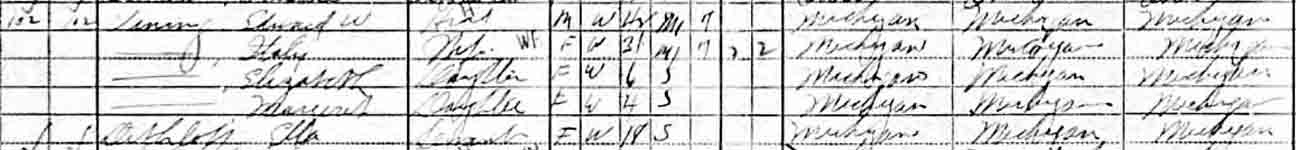 102 102 Edward W Head M W M1 7 Michigan Michigan Michigan
Wife F W 31 M1 7 2 2 Michigan Michigan Michigan
Elizabeth Daughter F W 6 S Michigan Michigan Michigan
Margaret Daughter F W 4 S Michigan Michigan Michigan
Ella Servant F W 18 S Michigan Michigan, Michigan